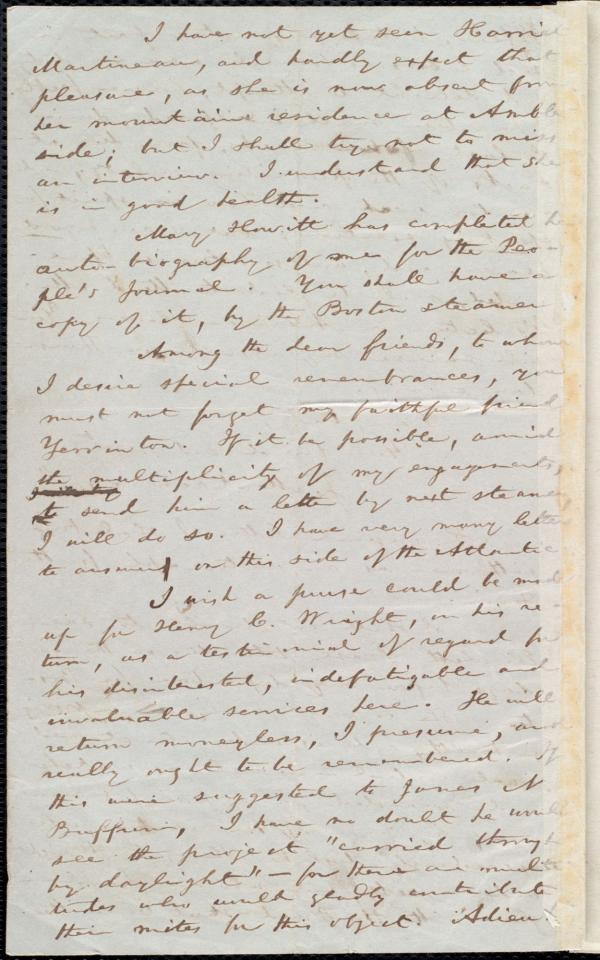 I have not yet seen Harriet
Martineau, and hardly expect that
pleasure, as she is now absent from
her mountain residence at Amble
side; but I shall try not to miss
an interview. I understand that she
is in good health.
Mary Howitt has completed her
auto-biography of me for the Peo-
ple's Journal. You shall have a
copy of it, by the Boston steamer
Among the dear friends, to whom
I desire special remembrances, you
must not forget my faithful friend
Yerrinton. If it be possible, amid
the multiplicity of my engagements,
to send him a letter by next steamer,
I will do so. I have very many letters
to answer on this side of the Atlantic
I wish a purse could be made
up for Henry C. Wright, on his re-
turn, as a testimonial of regard for
his disinterested, indefatigable and
invaluable services here. He will
return moneyless, I presume, and
really ought to be remembered. If
this were suggested to James N.
Buffum, I have no doubt he would
see the project "carried through
by daylight" — for there are multi
tudes who would gladly contribute
their mites for this object. Adieu.